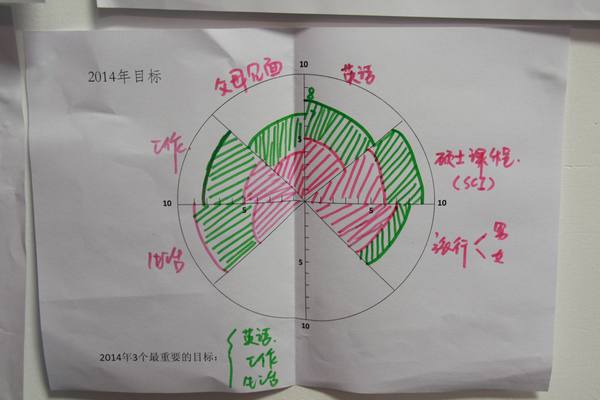 2014年目标
父母见面
英语
10
8
5
工作
硕士课程
(SCI)
10
5
5
10
旅行
男
女
生活
5
10
2014年3个最重要的目标：
英语
工作
生活